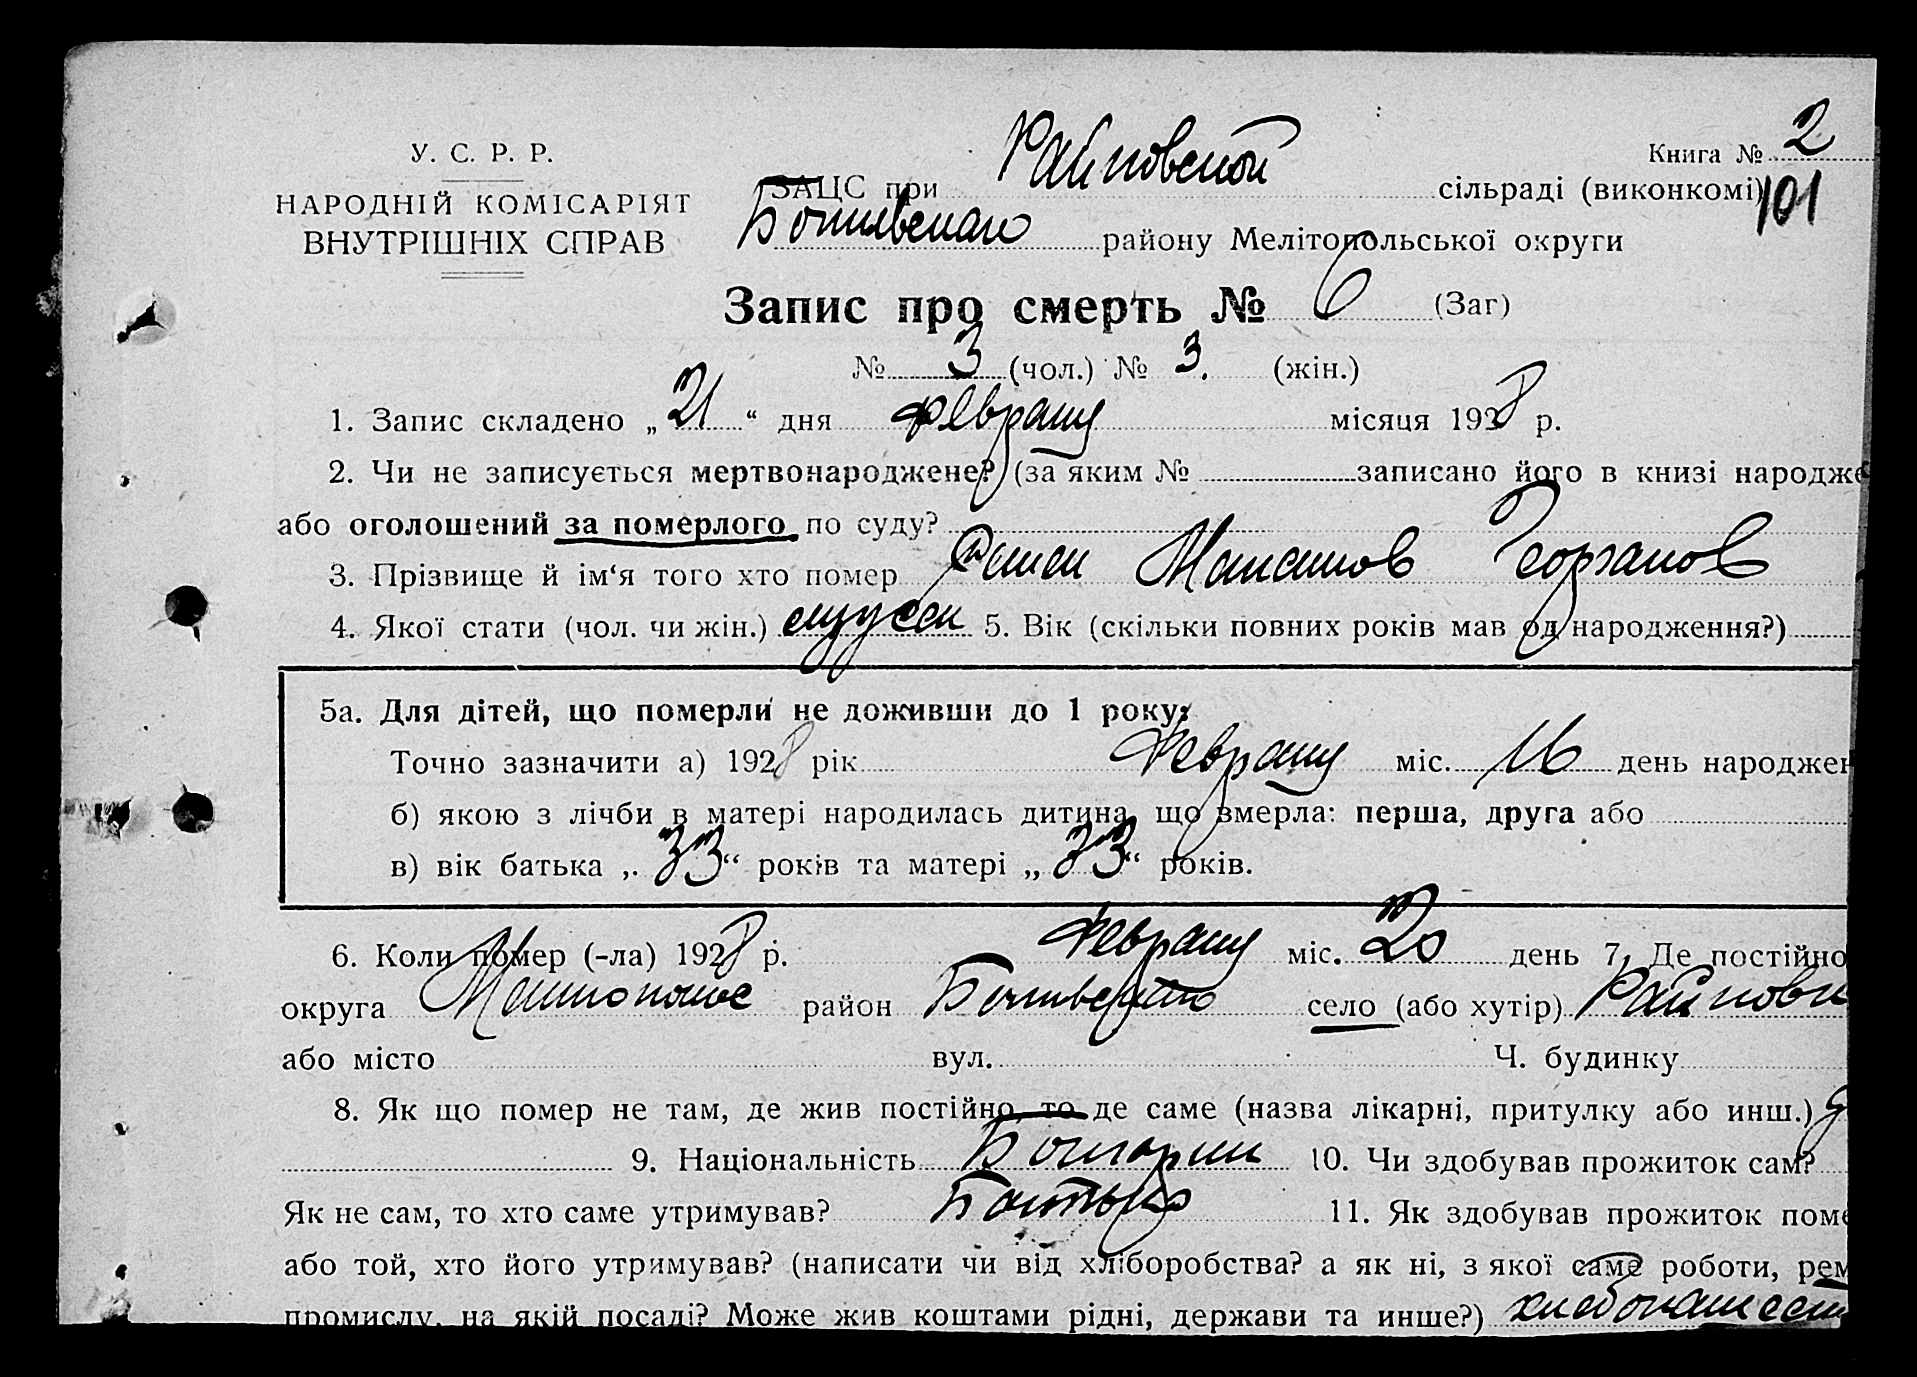 У. С. Р. Р.
НАРОДНІЙ КОМІСАРІЯТ
ВНУТРІШНІХ СПРАВ
Книга № 2
101
ЗАЦС при Райновской сільраді (виконкомі)
району Мелітопольської округи
Запис про смерть № 6 (Заг)
№ 3 (чол.) № 3. (жін.)
1. Запис складено „ 21 “ дня февраля місяця 1928 р.
2. Чи не записується мертвонароджене? (за яким № записано його в книзі народже
або оголошений за померлого по суду?
3. Прізвище й ім‘я того хто помер
4. Якої стати (чол. чи жін.) 5. Вік (скільки повних років мав од народження?)
5а. Для дітей, що померли не доживши до 1 року:
Точно зазначити а) 1928 рік февраля міс. 16 день народжен
б) якою з лічби в матері народилась дитина, що вмерла: перша, друга або
в) вік батька „ 33 “ років та матері „ 33 “ років.
6. Коли помер (-ла) 1928 р. февраля міс. 20 день 7. Де постійно
округа район село (або хутір) Райнов
або місто вул. Ч. будинку
8. Як що помер не там, де жив постійно, то де саме (назва лікарні, притулку або инш.)
9. Національність Болгарин 10. Чи здобував прожиток сам?
Як не сам, то хто саме утримував? 11. Як здобував прожиток поме
або той, хто його утримував? (написати чи від хліборобства? а як ні, з якої саме роботи, рем
промислу, на якій посаді? Може жив коштами рідні, держави та инше?)